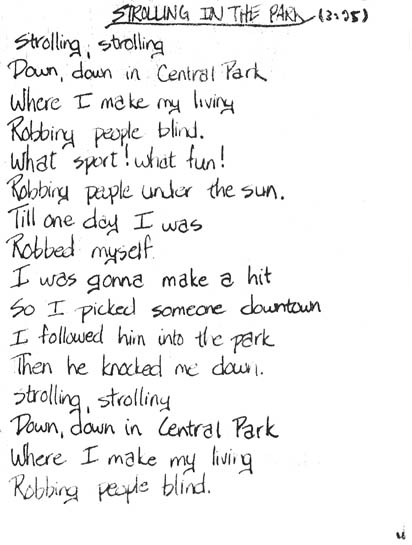 STROLLING IN THE PARK (3:25)
Strolling, strolling
Down, down in Central Park
Where I make my living
Robbing people blind.
What sport! What fun!
Robbing people under the sun.
Till one day I was
Robbed myself.
I was gonna make a hit
So I picked someone downtown
I followed him into the park
Then he knocked me down.
Strolling, strolling
Down, down in Central Park
Where I make my living
Robbing people blind.